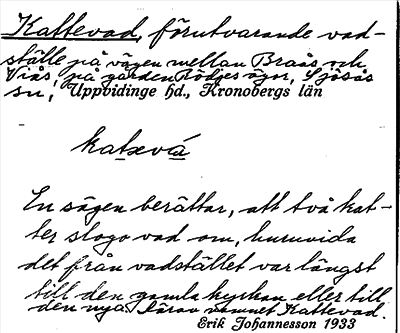 Kattevad, förutvarande vad-
ställe på vägen mellan Braås och
Viås, på gården Bödjes ägor, Sjösås
sn, Uppvidinge hd., Kronobergs län
katəvá
En sägen berättar, att två kat-
ter slogo vad om, huruvida
det från vadstället var längst
till den gamla kyrkan eller till
den nya. Därav namnet Kattevad.
Erik Johannesson 1933